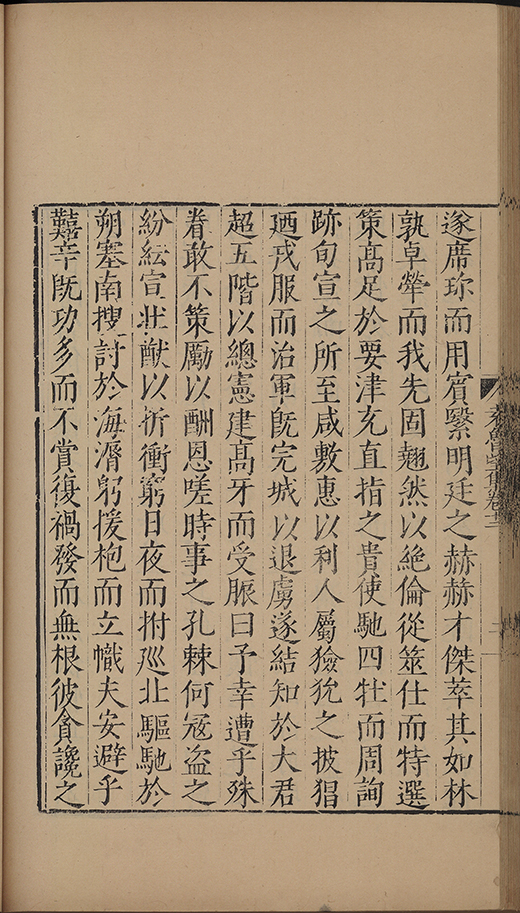 遂席珎而用賔繄明廷之赫赫才傑萃其如林
孰卓犖而我先固翹然以絶倫從筮仕而特選
策高足於要津充直指之貴使馳四牡而周詢
跡旬宣之所至咸敷惠以利人屬獫狁之披猖
廼戎服而治軍旣完城以退虜遂結知於大君
超五階以總憲建高牙而受脤曰予幸遭乎殊
眷敢不策勵以酬恩嗟時事之孔棘何冦盗之
紛紜宣壯猷以折衝窮日夜而拊廵北驅馳於
朔塞南搜討於海濱躬援枹而立幟夫安避乎
囏辛旣功多而不賞復禍發而無根彼貪讒之